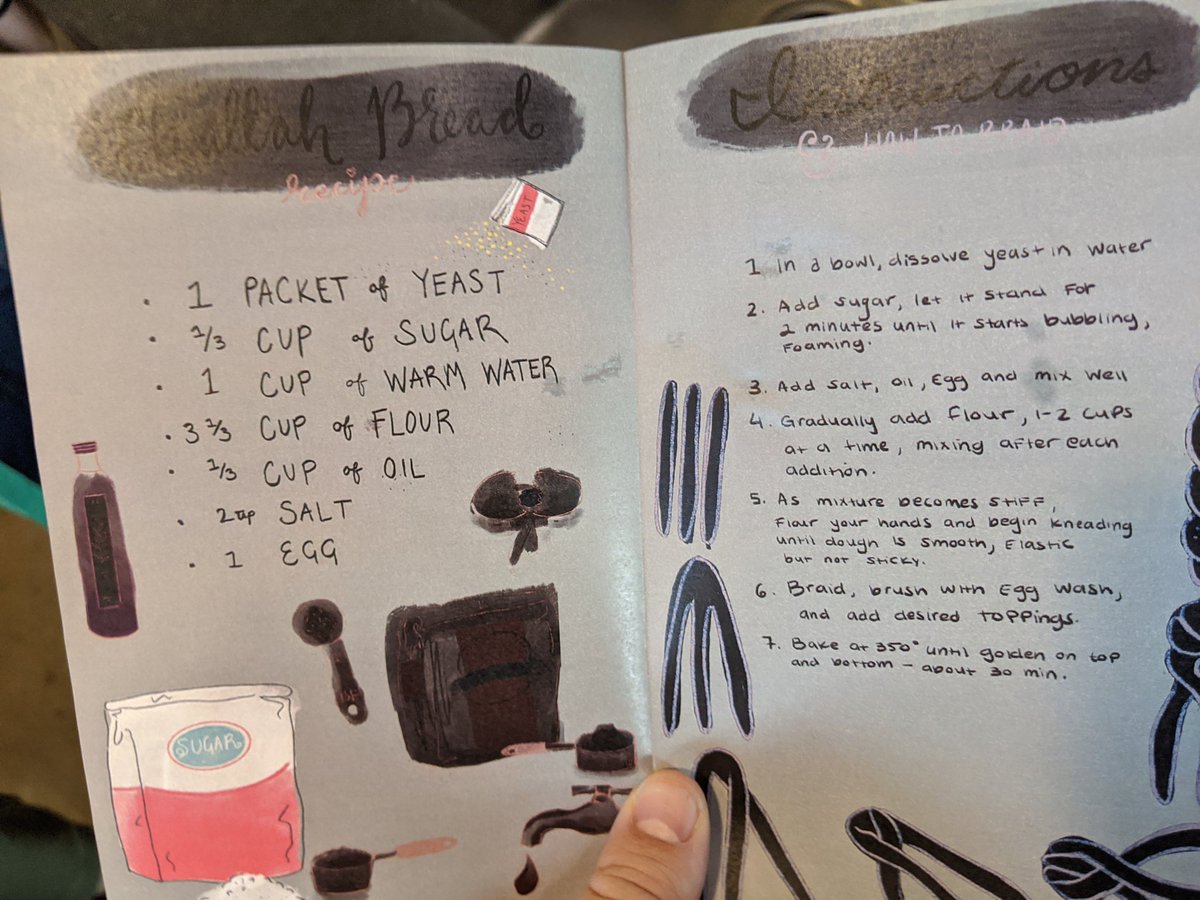 Challah Bread
recipe
YEAST
· 1 PACKET of YEAST
· 1/3 CUP of SUGAR
· 1 CUP of WARM WATER
· 3 2/3 CUP of FLOUR
· 1/3 CUP of OIL
· 2 tsp SALT
· 1 EGG
SUGAR
Instructions
& HOW TO BRAID
1 in a bowl, dissolve yeast in water
2. Add sugar, let it stand for
2 minutes until it starts bubbling,
Foaming.
3. Add salt, oil, Egg and mix well
4. Gradually add flour, 1-2 cups
at a time, mixing after each
addition.
5. As mixture becomes stiff,
Flour your hands and begin kneading
until dough is smooth, Elastic
but not sticky.
6. Braid, brush with Egg wash,
and add desired toppings.
7. Bake at 350° until golden on top
and bottom – about 30 min.